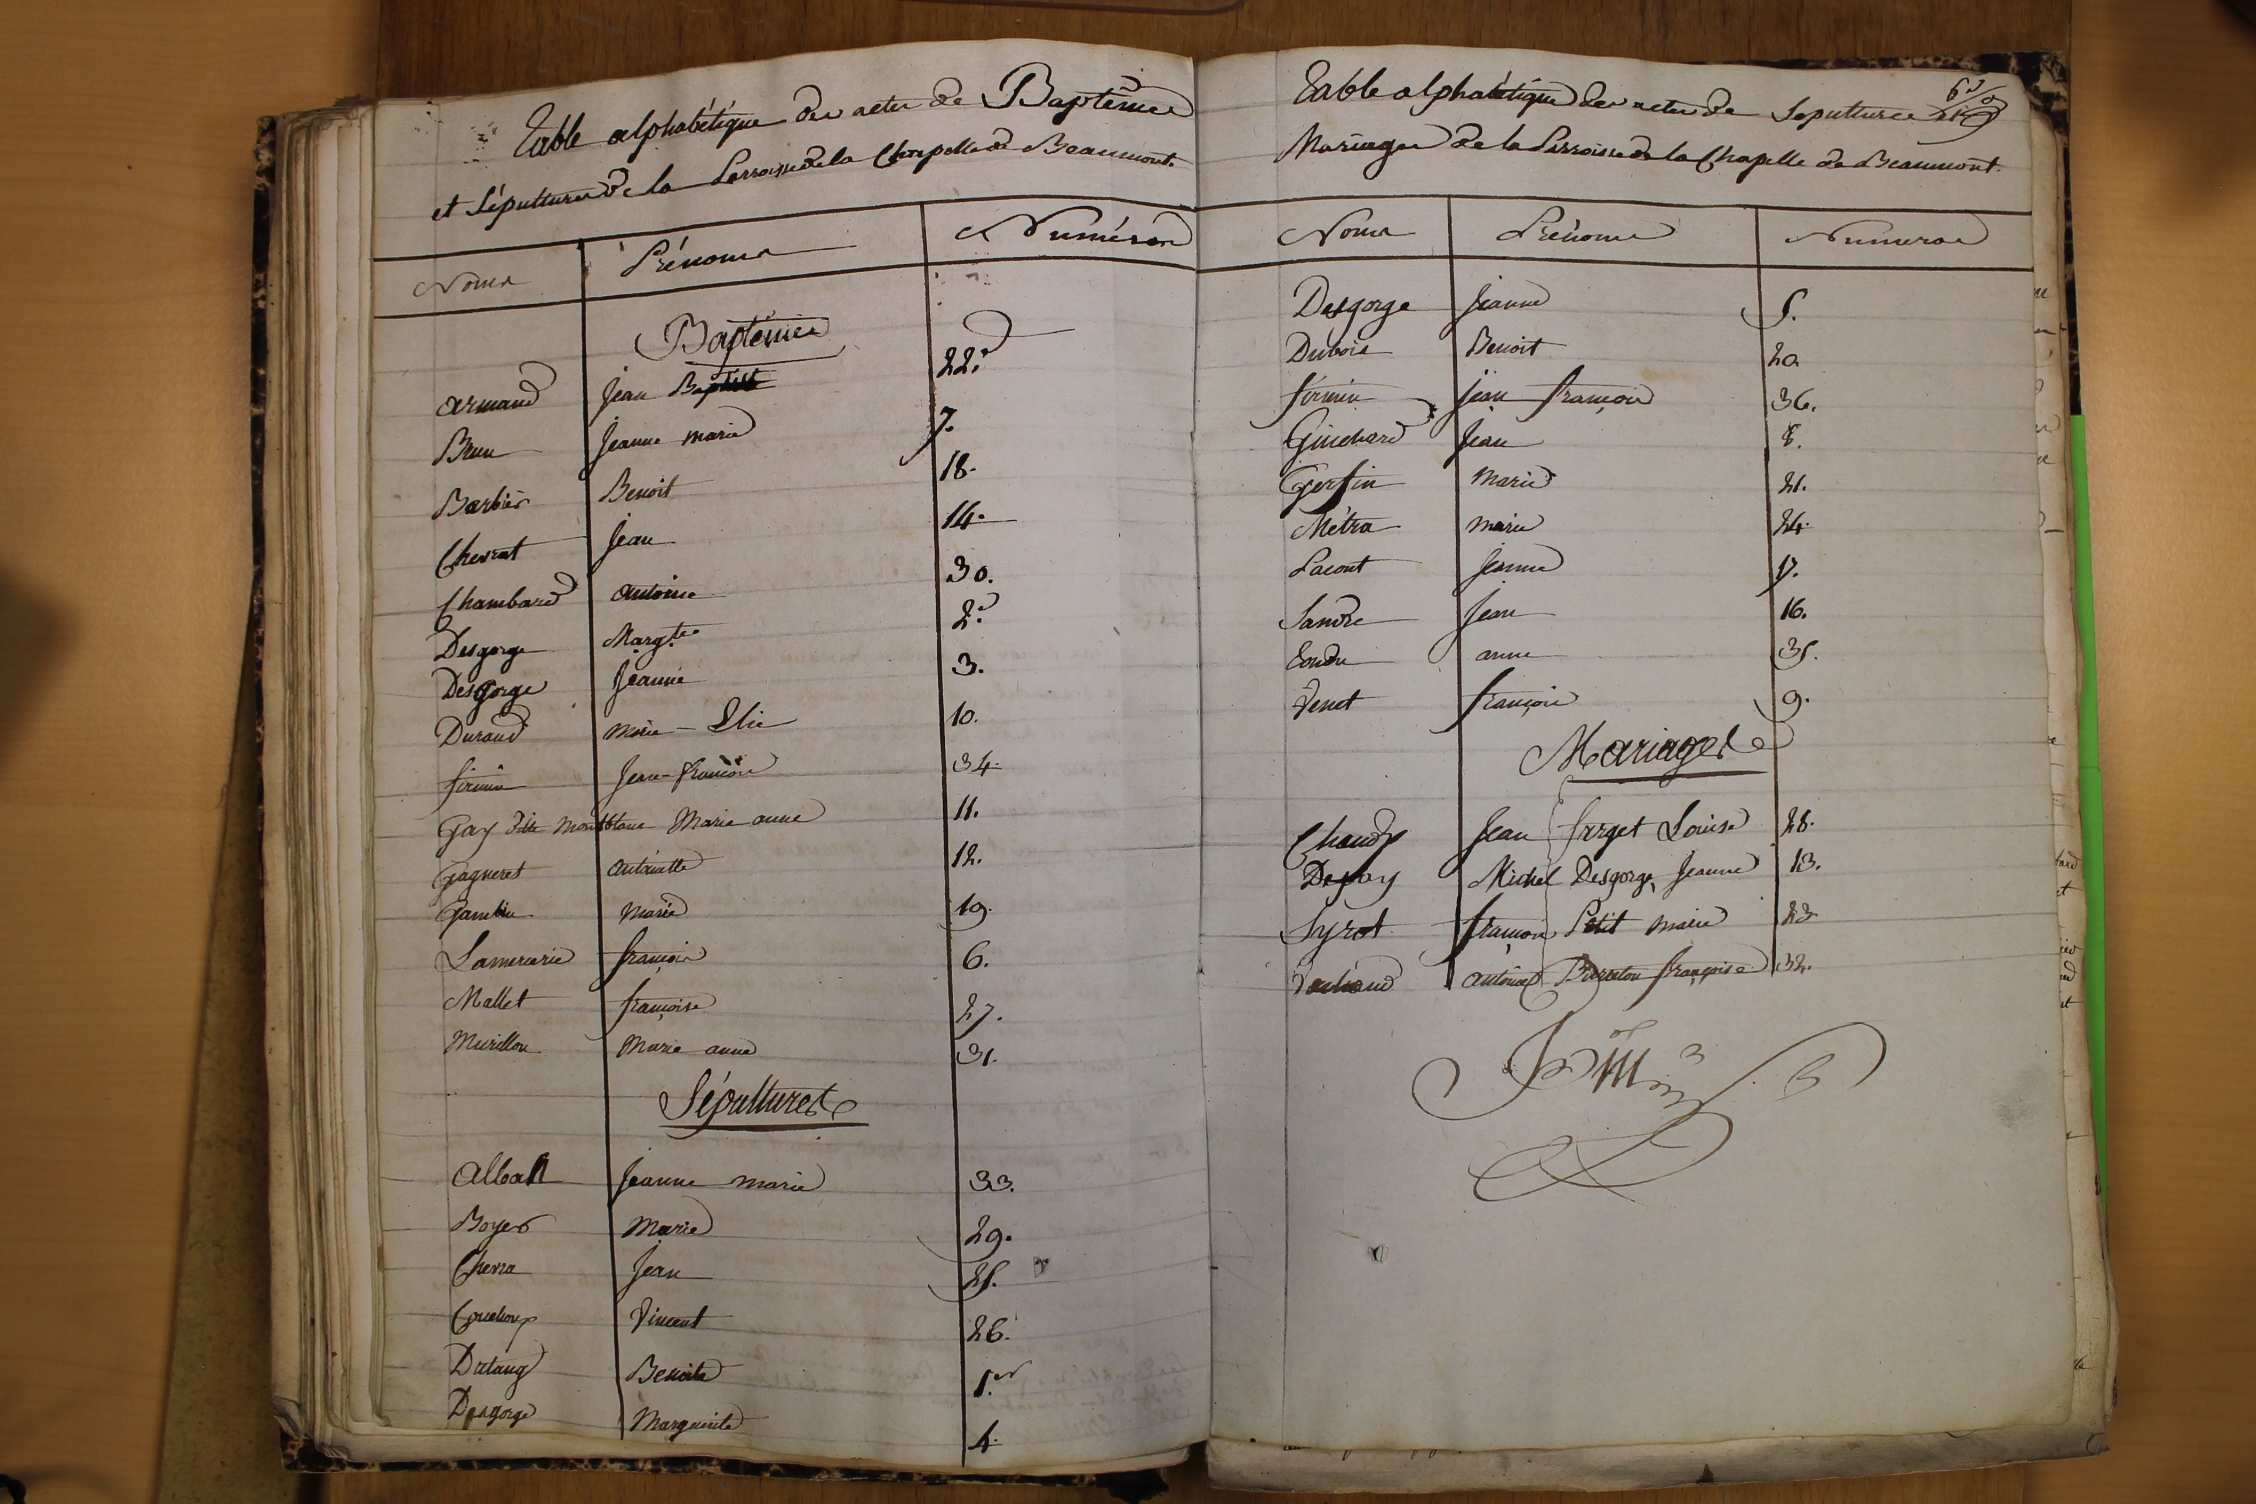 Table alphabétique des actes de Baptêmes
et Sépultures de la Parroisse de la Chapelle de Beaumont.
Noms Prénoms Numéros
Baptêmes
armand Jean Baptist 22.
Brun Jeanne marie 7.
Barbier Benoit 18.
Chevrat Jean 14.
Chambard antoine 30.
Desgorge Margte 2.
Desgorge Jeanne 3.
Durand marie - Elie 10.
firmin Jean-françois 34.
Gay dite montblanc Marie anne 11.
Gagneret antoinette 12.
Gambin marie 19.
Lamercerie françois 6.
Mallet françoise 27.
Murillon Marie anne 31.
Sépultures
Jeanne marie 33.
Boyer Marie 29.
Chevra Jean 25.
Vincent 26.
Benoite 1.er
Desgorge Marguerite 4.
Table alphabétique des actes de Sepultures
Mariages de la Parroisse de la Chapelle de Beaumont.
Noms Prénoms Numeros
Desgorge Jeanne 5.
Dubois Benoit 20
firmin jean françois 36.
Guichard Jean 8.
Gerfin Marie 21.
Métra marie 24.
Lacout Jeanne 17.
Sandre Jean 16.
anne 35.
Venet françois 9.
Mariages
Chaudy Jean farget Louise 28.
Michel Desgorge Jeanne 13.
Syrot françois Petit marie 23.
antoine françoise 32.